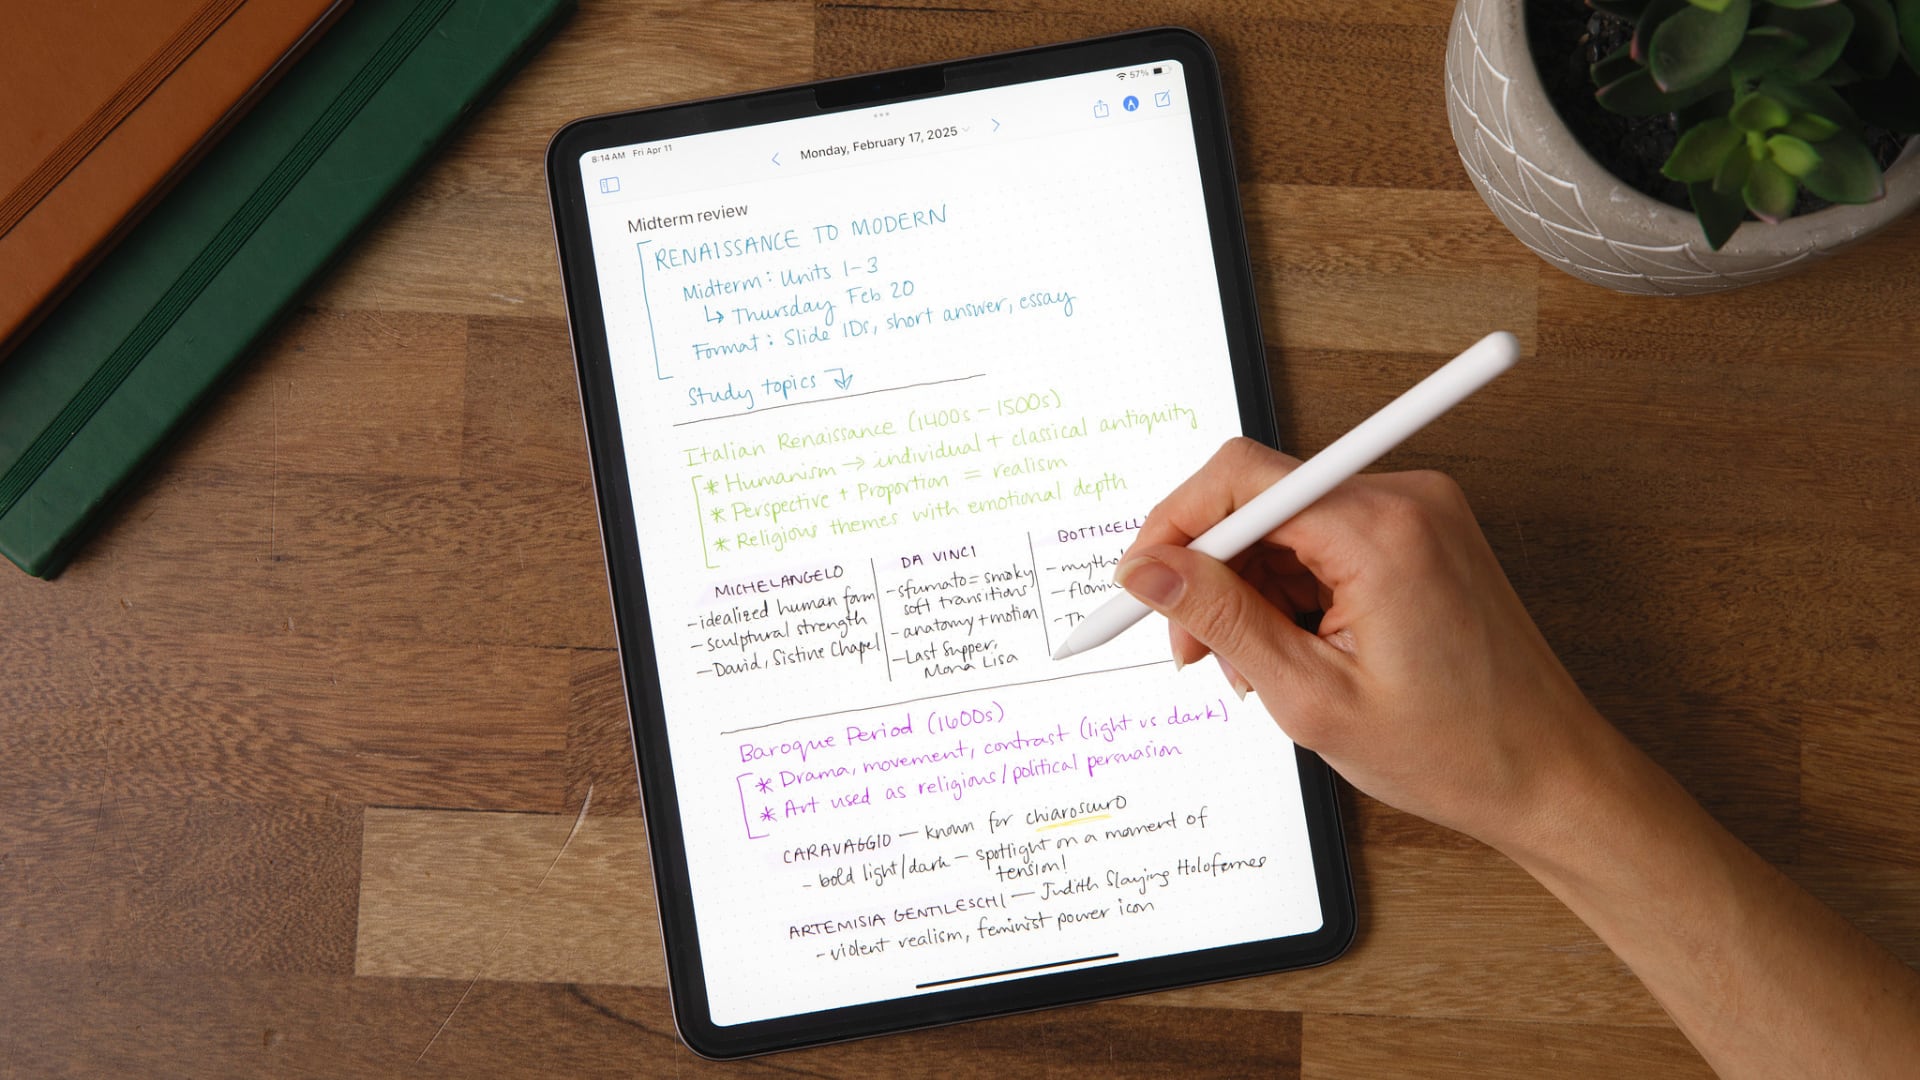 8:14 AM Fri Apr 11
57%
Monday, February 17, 2025
Midterm review
RENAISSANCE TO MODERN
Midterm: Units 1-3
↳ Thursday Feb 20
Format: Slide IDs, short answer, essay
Study topics
Italian Renaissance (1400s - 1500s)
* Humanism → individual + classical antiquity
* Perspective + Proportion = realism
* Religious themes with emotional depth
MICHELANGELO
- idealized human form
- sculptural strength
- David, Sistine Chapel
DA VINCI
- sfumato = smoky
soft transitions
- anatomy + motion
- Last Supper,
Mona Lisa
BOTTICELL
- mytho
- flowin
- Th
Baroque Period (1600s)
* Drama, movement, contrast (light vs dark)
* Art used as religious/political persuasion
CARAVAGGIO — known for chiaroscuro
- bold light/dark — spotlight on a moment of
tension!
ARTEMISIA GENTILESCHI — Judith Slaying Holofernes
- violent realism, feminist power icon